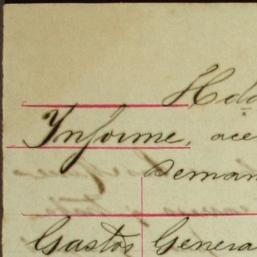 Informe, ace
seman
Gastos Genera